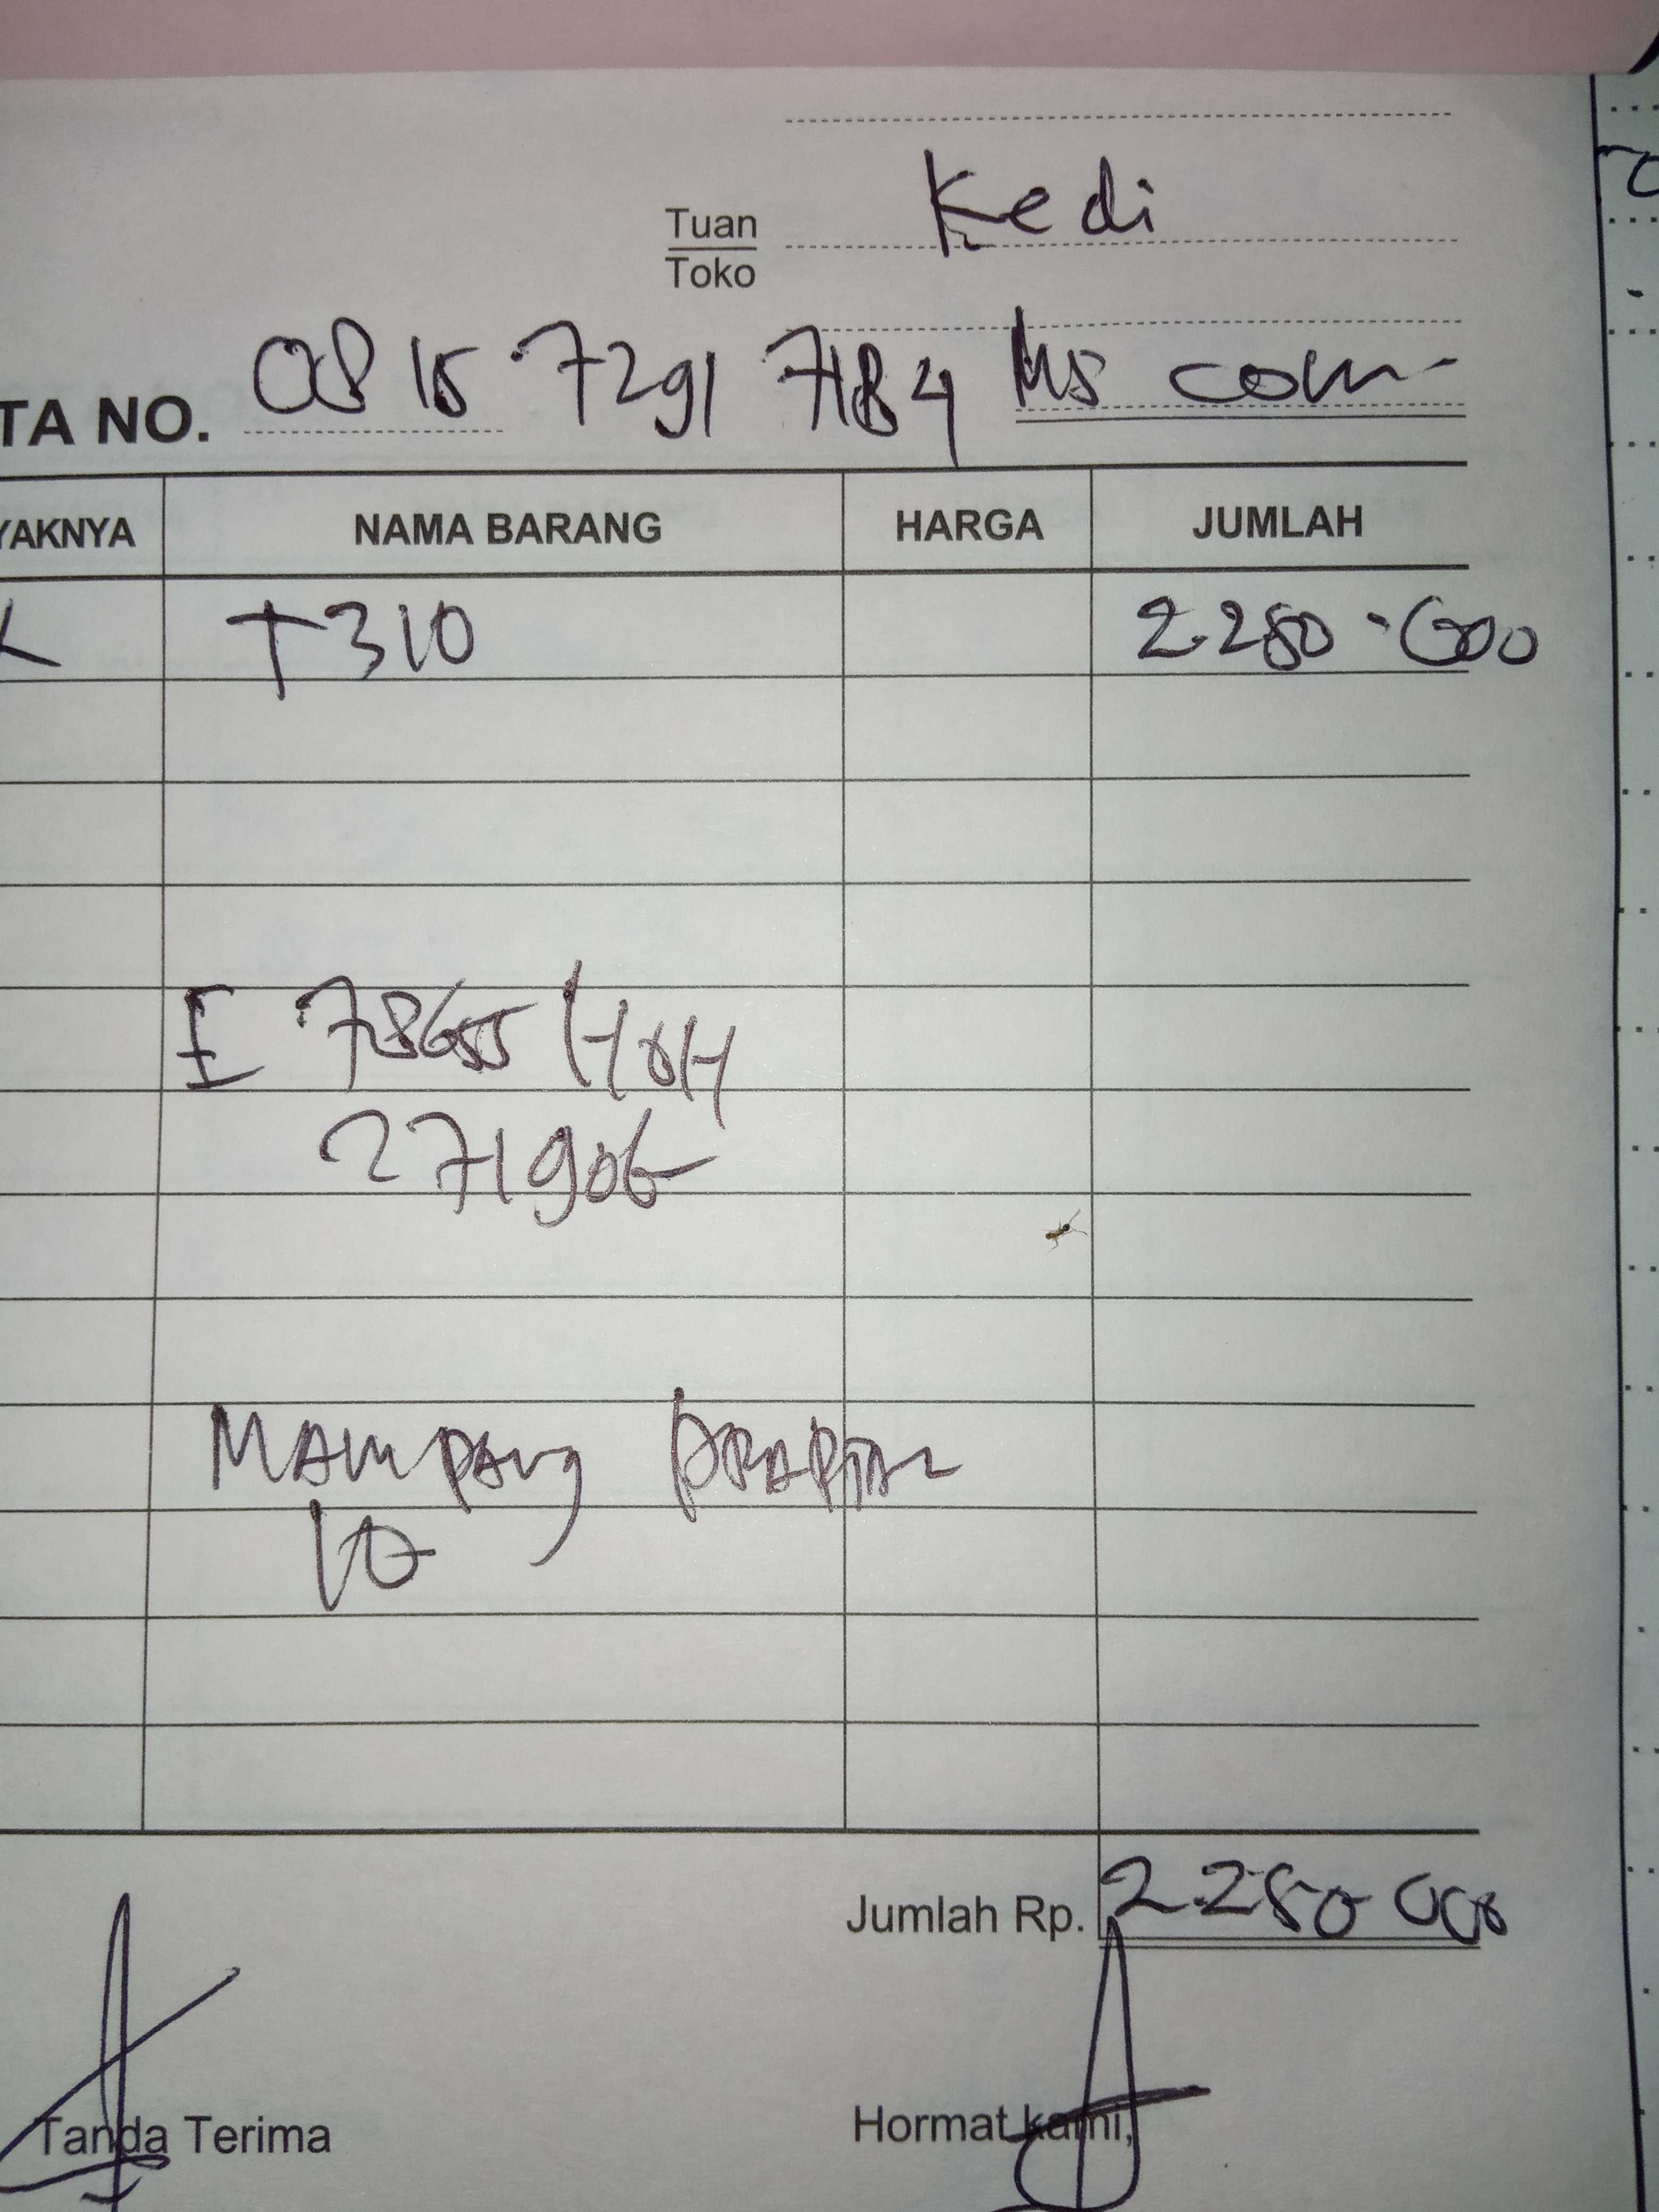 Kedi
Tuan
Toko
TA NO. 0815 7291 7184 MS com
YAKNYA NAMA BARANG HARGA JUMLAH
T310 2.280.000
271906
MAMPANG PRAPTAN
10
Jumlah Rp. 2.280 000
Tanda Terima Hormat kami,